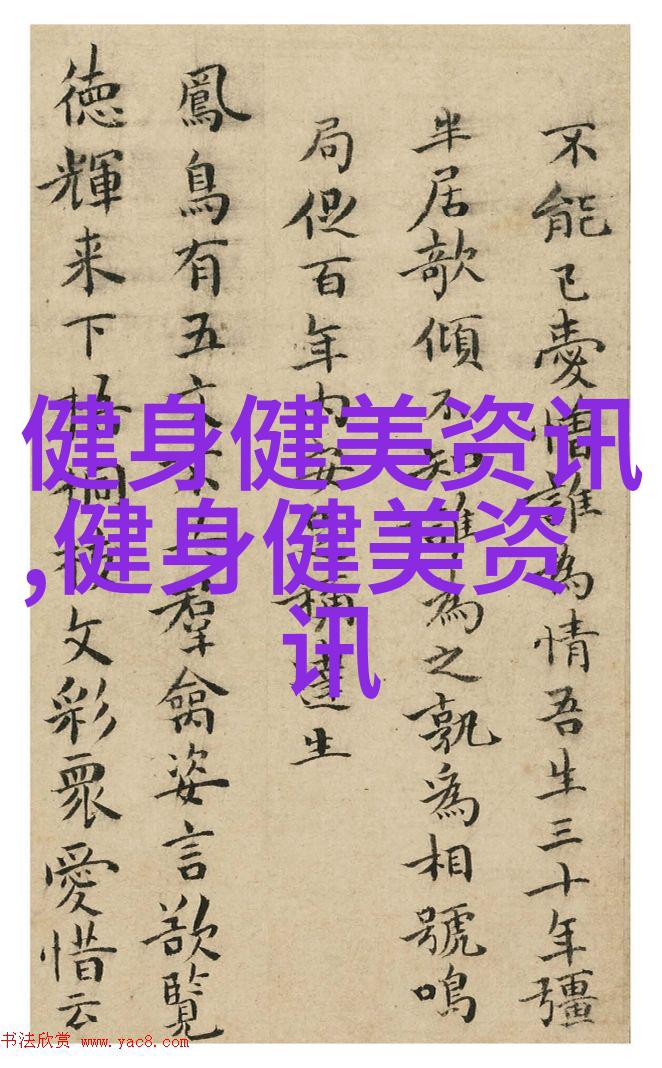 不能已憂惜誰為情吾生三十年彊
半居欹傾不知誰為之孰為相號鳴
局促百年内安稱達生
鳳鳥有五文不羣禽姿言欲覽
徳輝来下梧桐枝文彩衆愛惜云
健身健美资讯
,健身健美资
讯
书法欣赏 www.yac8.com